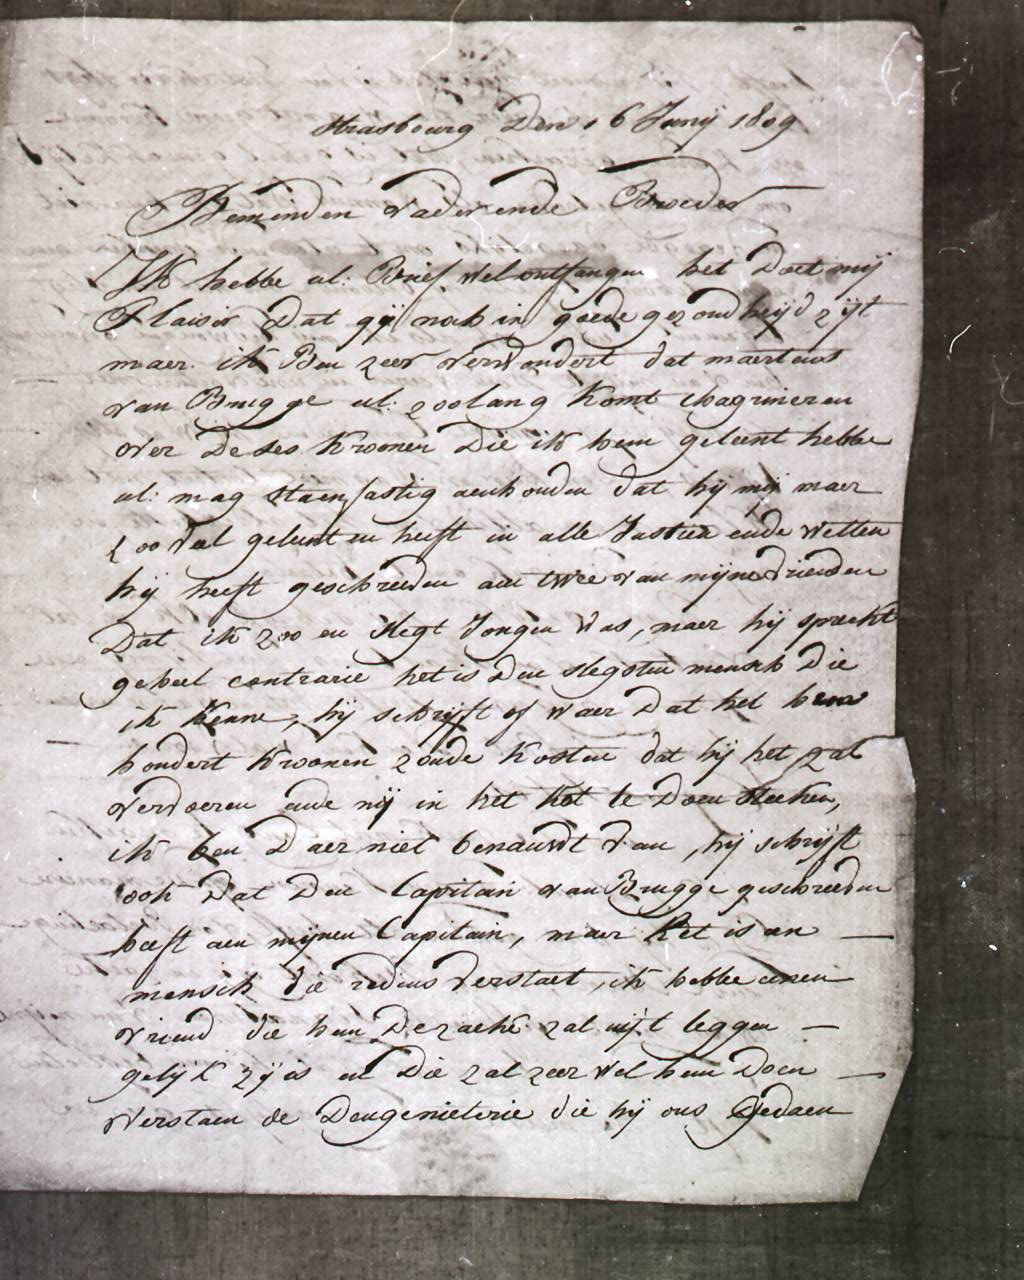 Strasbourg Den 16 Junij 1809
Beminden vader ende Broeder
Ik hebbe ul: Brief wel ontfangen het Doet mij
Plaisir Dat gij noch in goede gezondheijd zijt
maer ik Ben zeer verwondert dat maertens
van Brugge ul: zoolang komt chagrineren
over De ses kroonen Die ik hem geleent hebbe
ul: mag staenfastig aenhouden dat hij mij maer
geleent en heeft in alle Justicen ende wetten
hij heeft geschreeden aen twee van mijne vrienden
Dat ik zoo en slegt Jongen was, maer hij sprackt
geheel contrarie het is Den slegsten mensch Die
ik kenne, hij schrijft of waer Dat het hem
hondert kroonen zoude kosten dat hij het zal
vervoeren ende mij in het kot te Doen steeken,
ik ben Daer niet benauwt van, hij schrijft
ook Dat Den Capitain van Brugge geschreeden
heeft aen mijnen Capitain, maer Het is en
mensch die redens verstaet, ik hebbe eenen
vriend die hem De zaeke zal uijt leggen
gelijk zij is en Die zal zeer wel hem Doen
verstaen de Deugenieterie die hij ons Gedaen